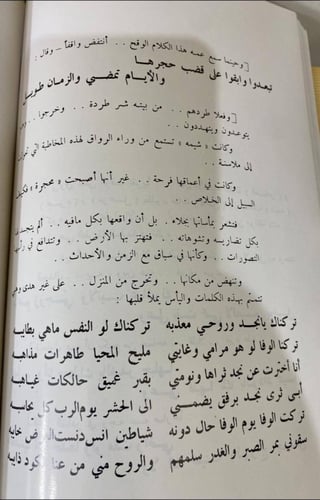 [ وحينما سمع عمه هذا الكلام الوقح . . أنتفض واقفاً – وقال :
تبعدوا وابقوا على قضب حجرها
والأيام تمضي والزمان طويل
[ وفعلا طردهم . . من بيته شر طردة . . وخرجوا . .
يتوعدون ويتهددون . .
وكانت « شيمه » تستمع من وراء الرواق لهذه المخاطبة التي
إلى ملاسنة . .
وكانت في أعماقها فرحة . . غير أنها أصبحت « محجرة »
السبيل إلى الخلاص . .
فتشعر بمأساتها بجلاء . بل أن واقعها بكل مافيه . . ألم يتجسد
بكل تضاريسه ونتوءاته . . فتهتز بها الأرض . . وتتدافع في
التصورات . . وكأنها في سباق مع الزمن والأحداث . .
وتنهض من مكانها . . وتخرج من المنزل . . على غير هدى
تتمتم بهذه الكلمات واليأس يملأ قلبها :
تركناك يانجد وروحي معذبه تركناك لو النفس ماهي بطايبه
تركنا الوفا لو هو مرامي وغايتي مليح المحيا طاهرات مذاهبه
أنا أخترت عن نجد ثراها ونومتي بقبر غميق حالكات غياهبه
أبى ثرى نجد برفق يضمني الى الحشر يوم الرب كل يحاسبه
تركت الوفا يوم الوفا حال دونه شياطين انس دنست العرض خايبه
سقوني بمر الصبر والغدر سلمهم والروح مني من عنا الكود ذايبه